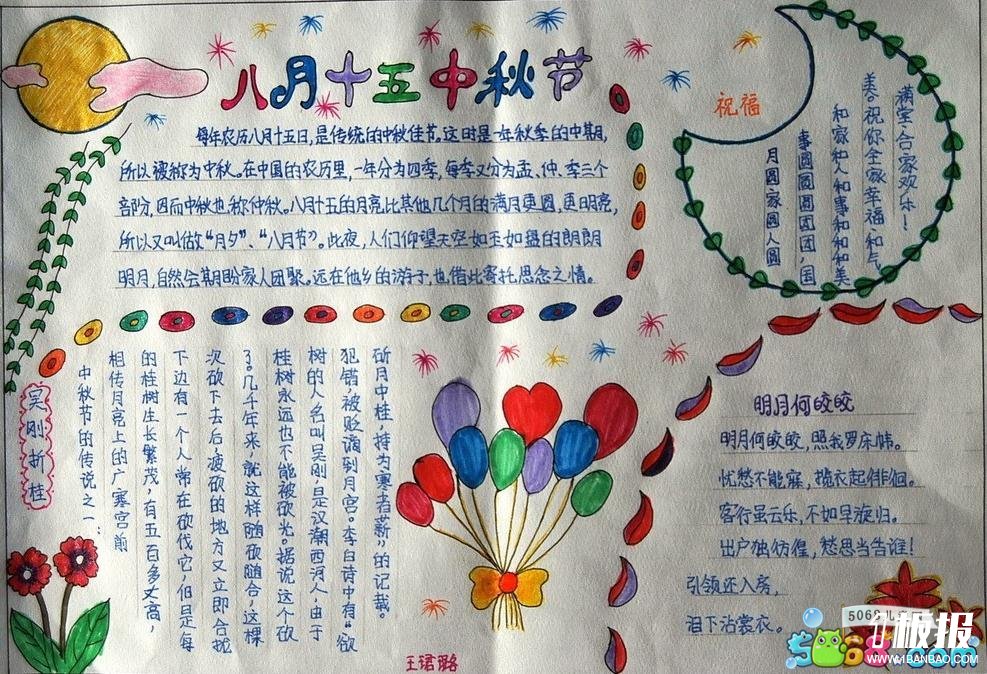 八月十五中秋节
每年农历八月十五日,是传统的中秋佳节。这时是一年秋季的中期,
所以被称为中秋。在中国的农历里,一年分为四季,每季又分为孟、仲、季三个
部分,因而中秋也称仲秋。八月十五的月亮比其他几个月的满月更圆,更明亮,
所以又叫做“月夕”、“八月节”。此夜,人们仰望天空如玉如盘的朗朗
明月,自然会期盼家人团聚。远在他乡的游子,也借此寄托思念之情。
祝福
满堂·合家欢乐!
美😊祝你全家幸福·和气
和家和人和事和和和美
事圆圆圆团团,国
月圆家圆人圆
吴刚折桂
中秋节的传说之一:
相传月亮上的广寒宫前
的桂树生长繁茂,有五百多丈高,
下边有一个人常在砍伐它,但是每
次砍下去后,被砍的地方又立即合拢
了。几千年来,就这样随砍随合,这棵
桂树永远也不能被砍光。据说这个砍
树的人名叫吴刚,是汉潮西河人,由于
犯错被贬谪到月宫。李白诗中有“欲
斫月中桂,持为寒者薪”的记载。
王珺璐
明月何皎皎
明月何皎皎,照我罗床帏。
忧愁不能寐,揽衣起徘徊。
客行虽云乐,不如早旋归。
出户独彷徨,愁思当告谁!
引领还入房,
泪下沾裳衣。
5068儿童网
5068.com
板报
WWW.41BANBAO.COM